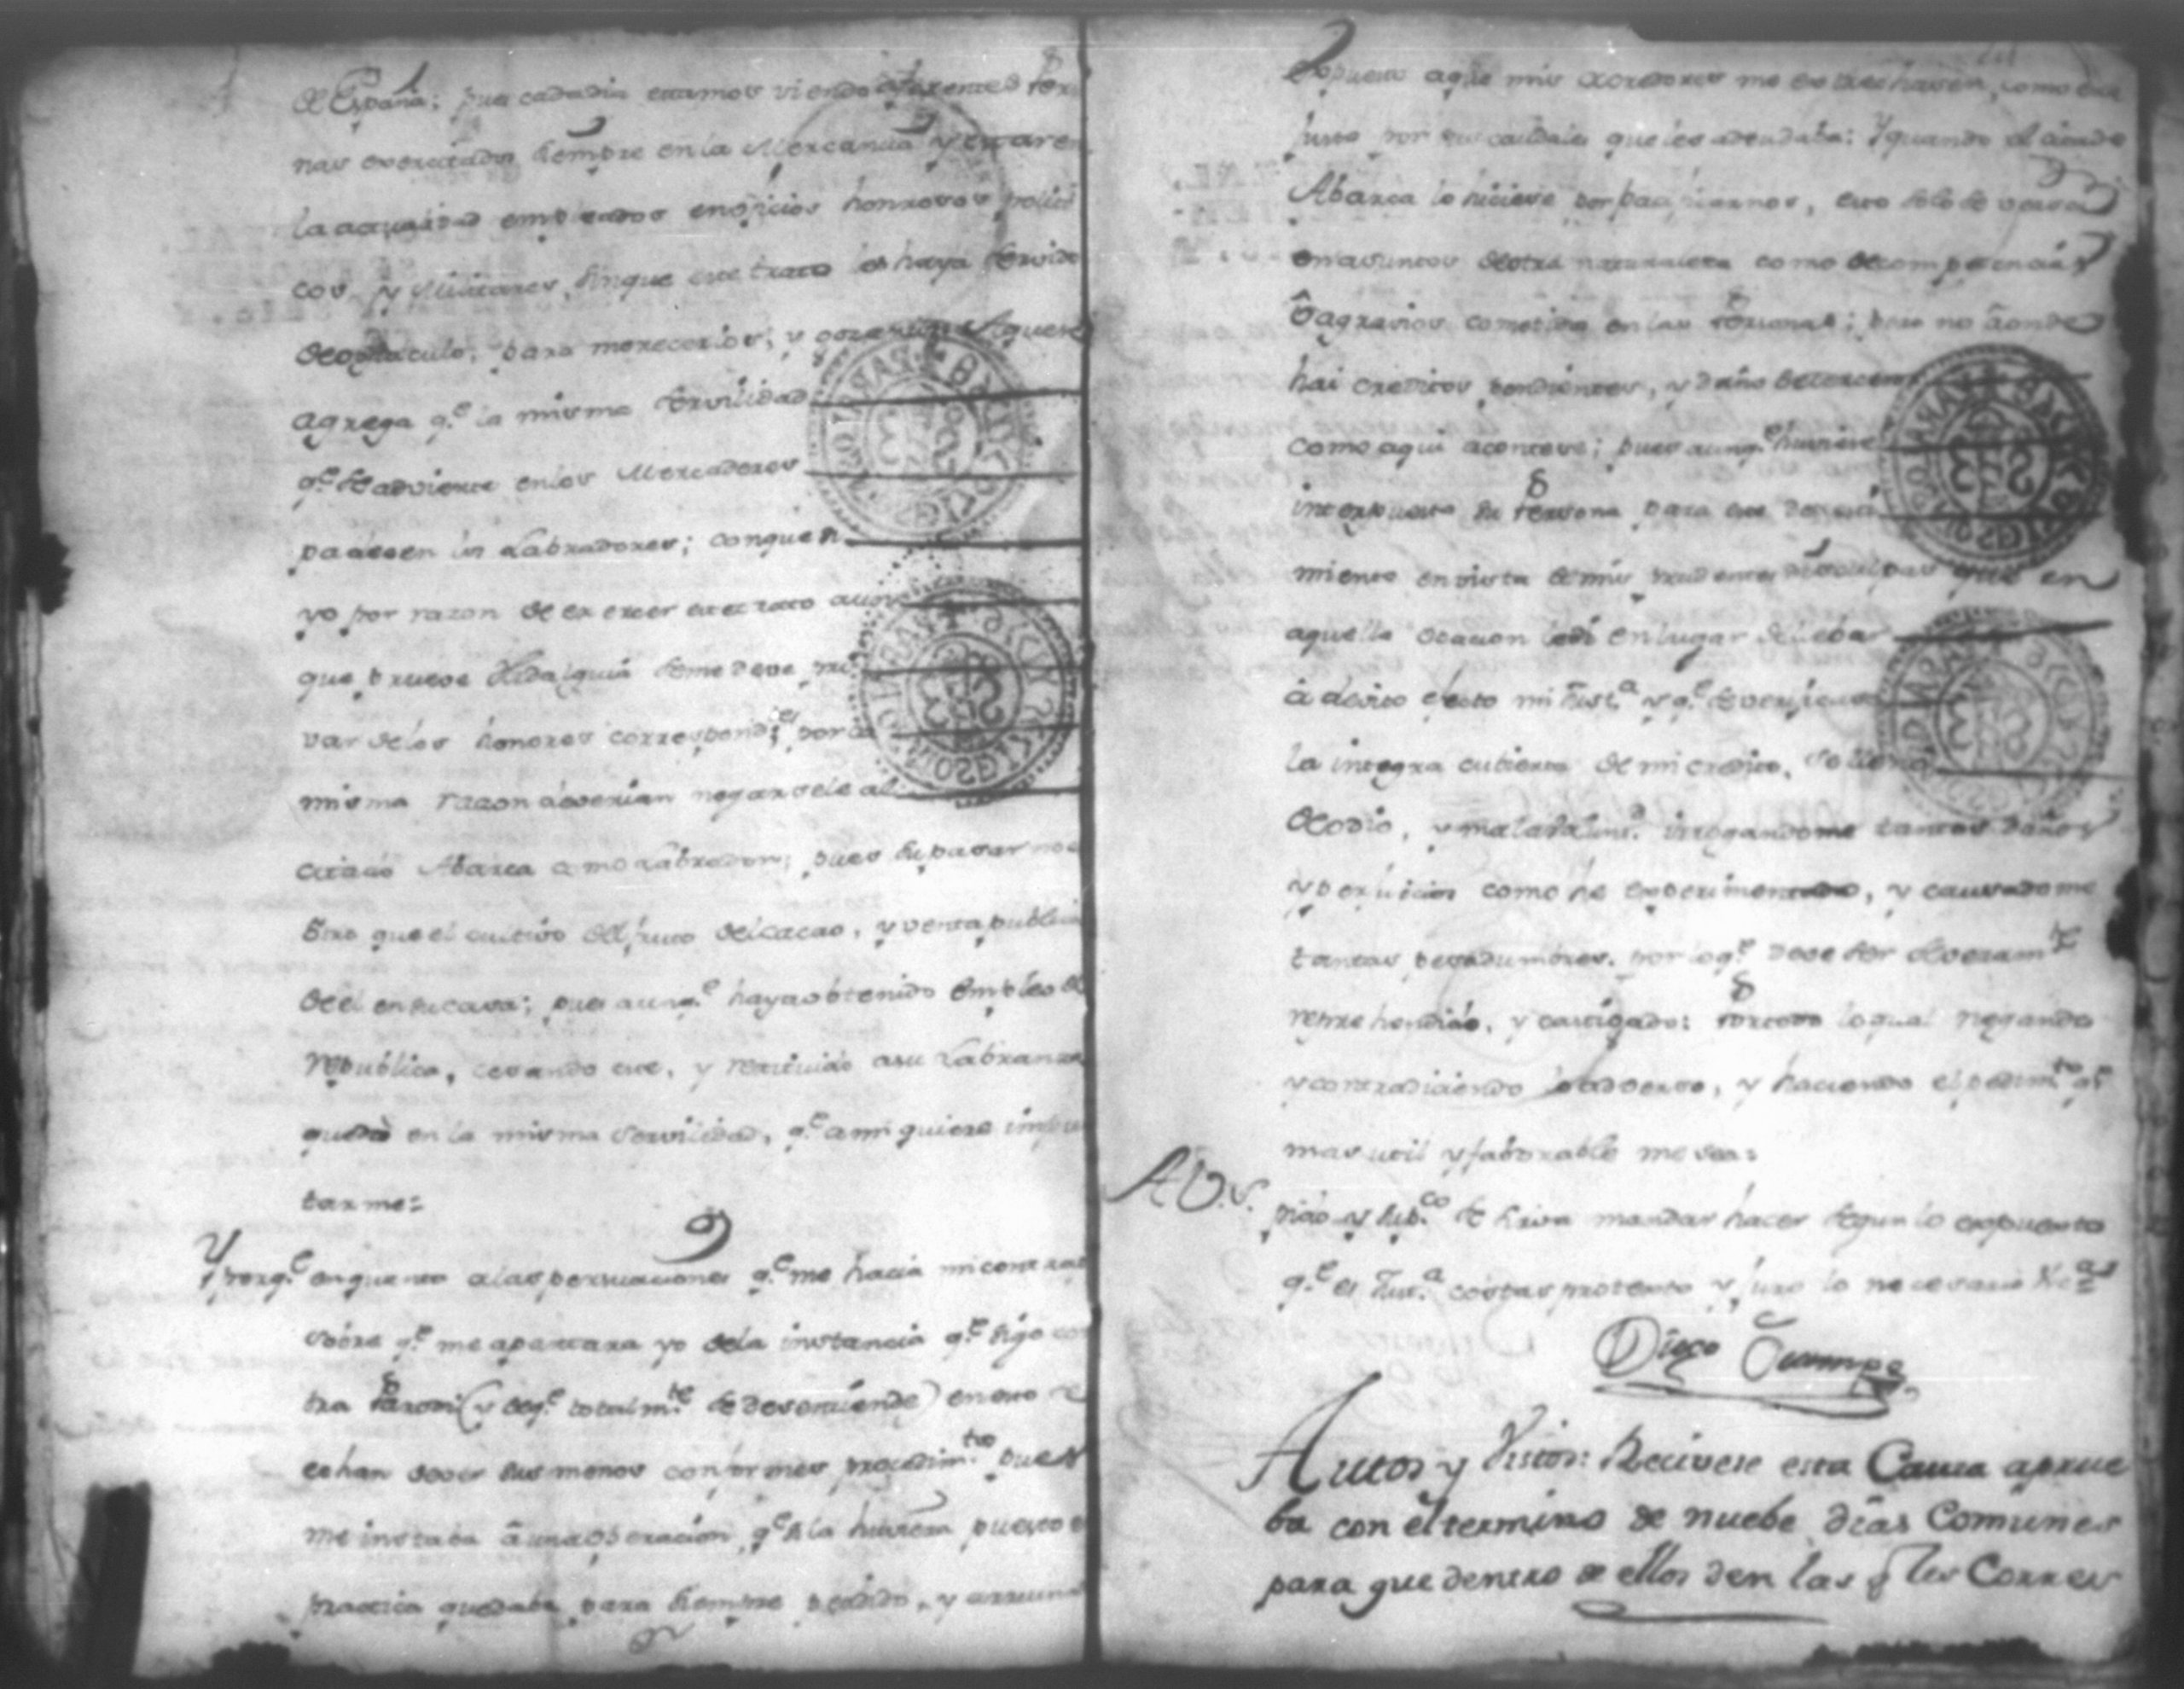 de España; pues cadadia estamos viendo diferentes Perso
nas exercitadas siempre en la Mercancia y estar en
la actualidad empleados en oficios honrosos politi
cos y Militares, sin que este trato les haya servido
de obstaculo, para merecerlos; y
agrega q.e la misma servilidad
q.e se advierte en los Mercaderes
padesen los Labradores; conque si
yo por razon de exercer este trato aun
que prueve Hidalguia se me deve pri
var de los honores correspond.tes por la
misma razon deverian negarsele al
citado Abarca como Labrador; pues su pasar no es
otro que el cultivo del fruto del cacao, y venta publica
de el en su casa; pues aunq.e haya obtenido empleo de
republica, cesando este, y restituido a su Labranza
quedó en la misma servilidad, q.e a mi quiere impu
tarme:
Y porq.e en quanto a las persuaciones q.e me hacia mi contrario
sobre q.e me apartara yo de la instancia q.e sigo con
tra (y de q.e totalm.te se desentiende) en eso se
echan de ver sus menos conformes procedim.tos pues
me instaba á una operacion, q.e si la huviera puesto en
practica quedaba para siempre perdido, y arruina
do
Expuesto a que mis acredores me estrechasen, como era
justo por sus caudales que les adeudaba: Y quando el citado
Abarca lo hiciese por pacificarnos, esto solo se versa
en asuntos de otra naturaleza como de competencias
ô agravios cometidos en las Personas; pero no â onde
hai creditos pendientes, y daño de tercero
como aqui acontese; pues aunq.e huviese
interpuesto su Persona para ese
miento en vista de mis prudentes disculpas que en
aquella ocacion le di en lugar de llebar
á devido efecto mi Just.a y q.e se verificase
la integra cubierta de mi credito, se llenó
de odio, y mala volunt.d irrogandome tantos daños
y perjuicios como he experimentado, y causadome
tantas pesadumbres. por lo q.e deve ser severam.te
reprehendido, y castigado: Por todo lo qual negando
y contradiciendo lo adverso, y haciendo el pedim.to q.e
mas util y faborable me sea:
A V.S.
pido y sup.co se sirva mandar hacer segun lo expuesto
q.e es Just.a costas protesto y juro lo necesario &.as
Diego Ocampo
Autos y Vistos: Recivese esta Causa a prue
ba con el termino de nuebe dias Comunes
para que dentro de ellos den las q les Corres